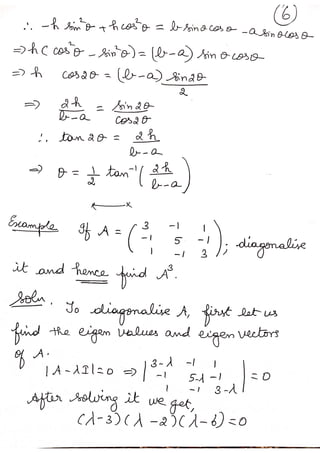 (6)
∴ -h sin²θ + h cos²θ = b sinθ cosθ - a sinθ cosθ
⇒ h (cos²θ - sin²θ) = (b-a) sinθ cosθ
⇒ h cos2θ = (b-a) sin2θ/2
⇒ 2h/(b-a) = sin2θ/cos2θ
∴ tan 2θ = 2h/(b-a)
⇒ θ = 1/2 tan⁻¹(2h/(b-a))
←——×
Example If A = (3 -1 1; -1 5 -1; 1 -1 3); diagonalise
it and hence find A³.
Soln. To diagonalise A, first let us
find the eigen values and eigen vectors
of A.
|A-λI|=0 ⇒ |3-λ -1 1; -1 5-λ -1; 1 -1 3-λ| = 0
After solving it we get,
(λ-3)(λ-2)(λ-6)=0